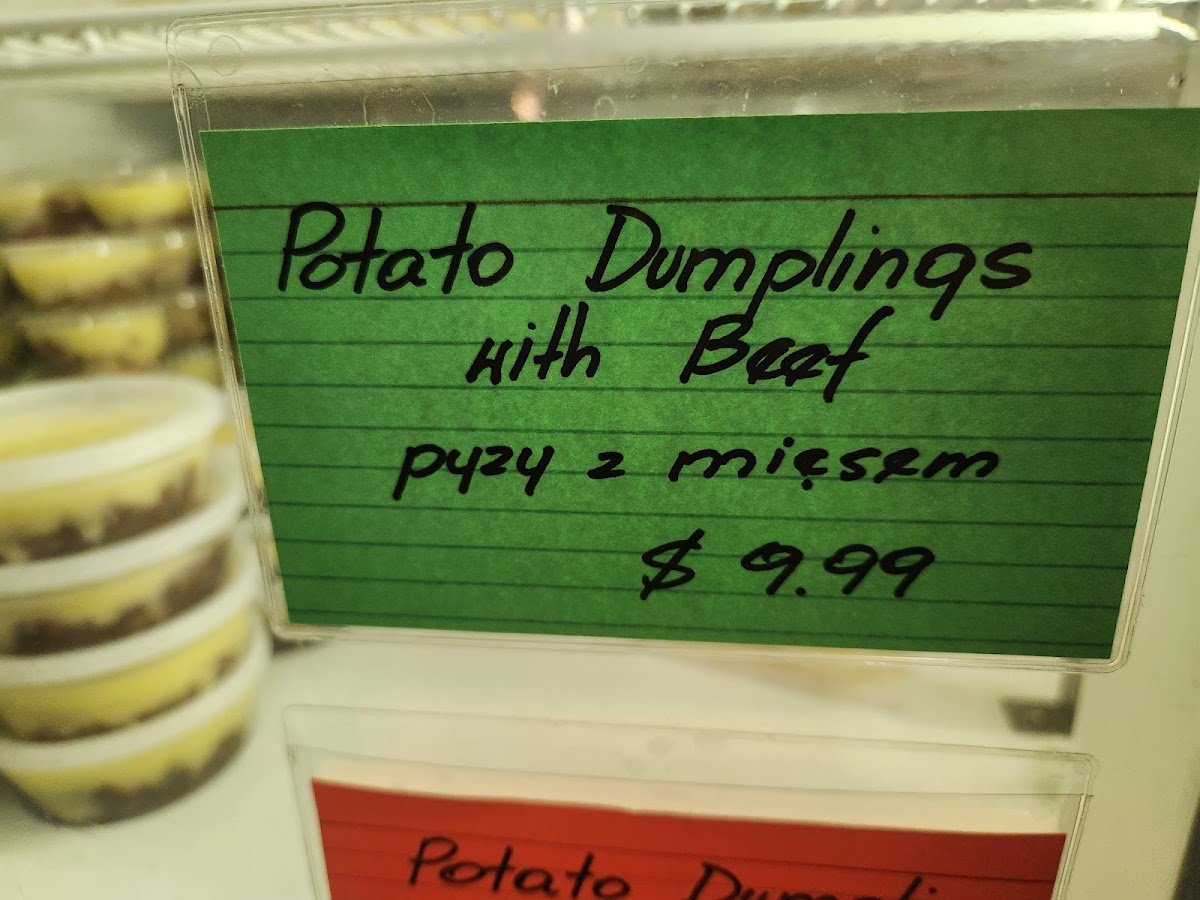 Potato Dumplings
with Beef
pyzy z mięsem
$ 9.99
Potato